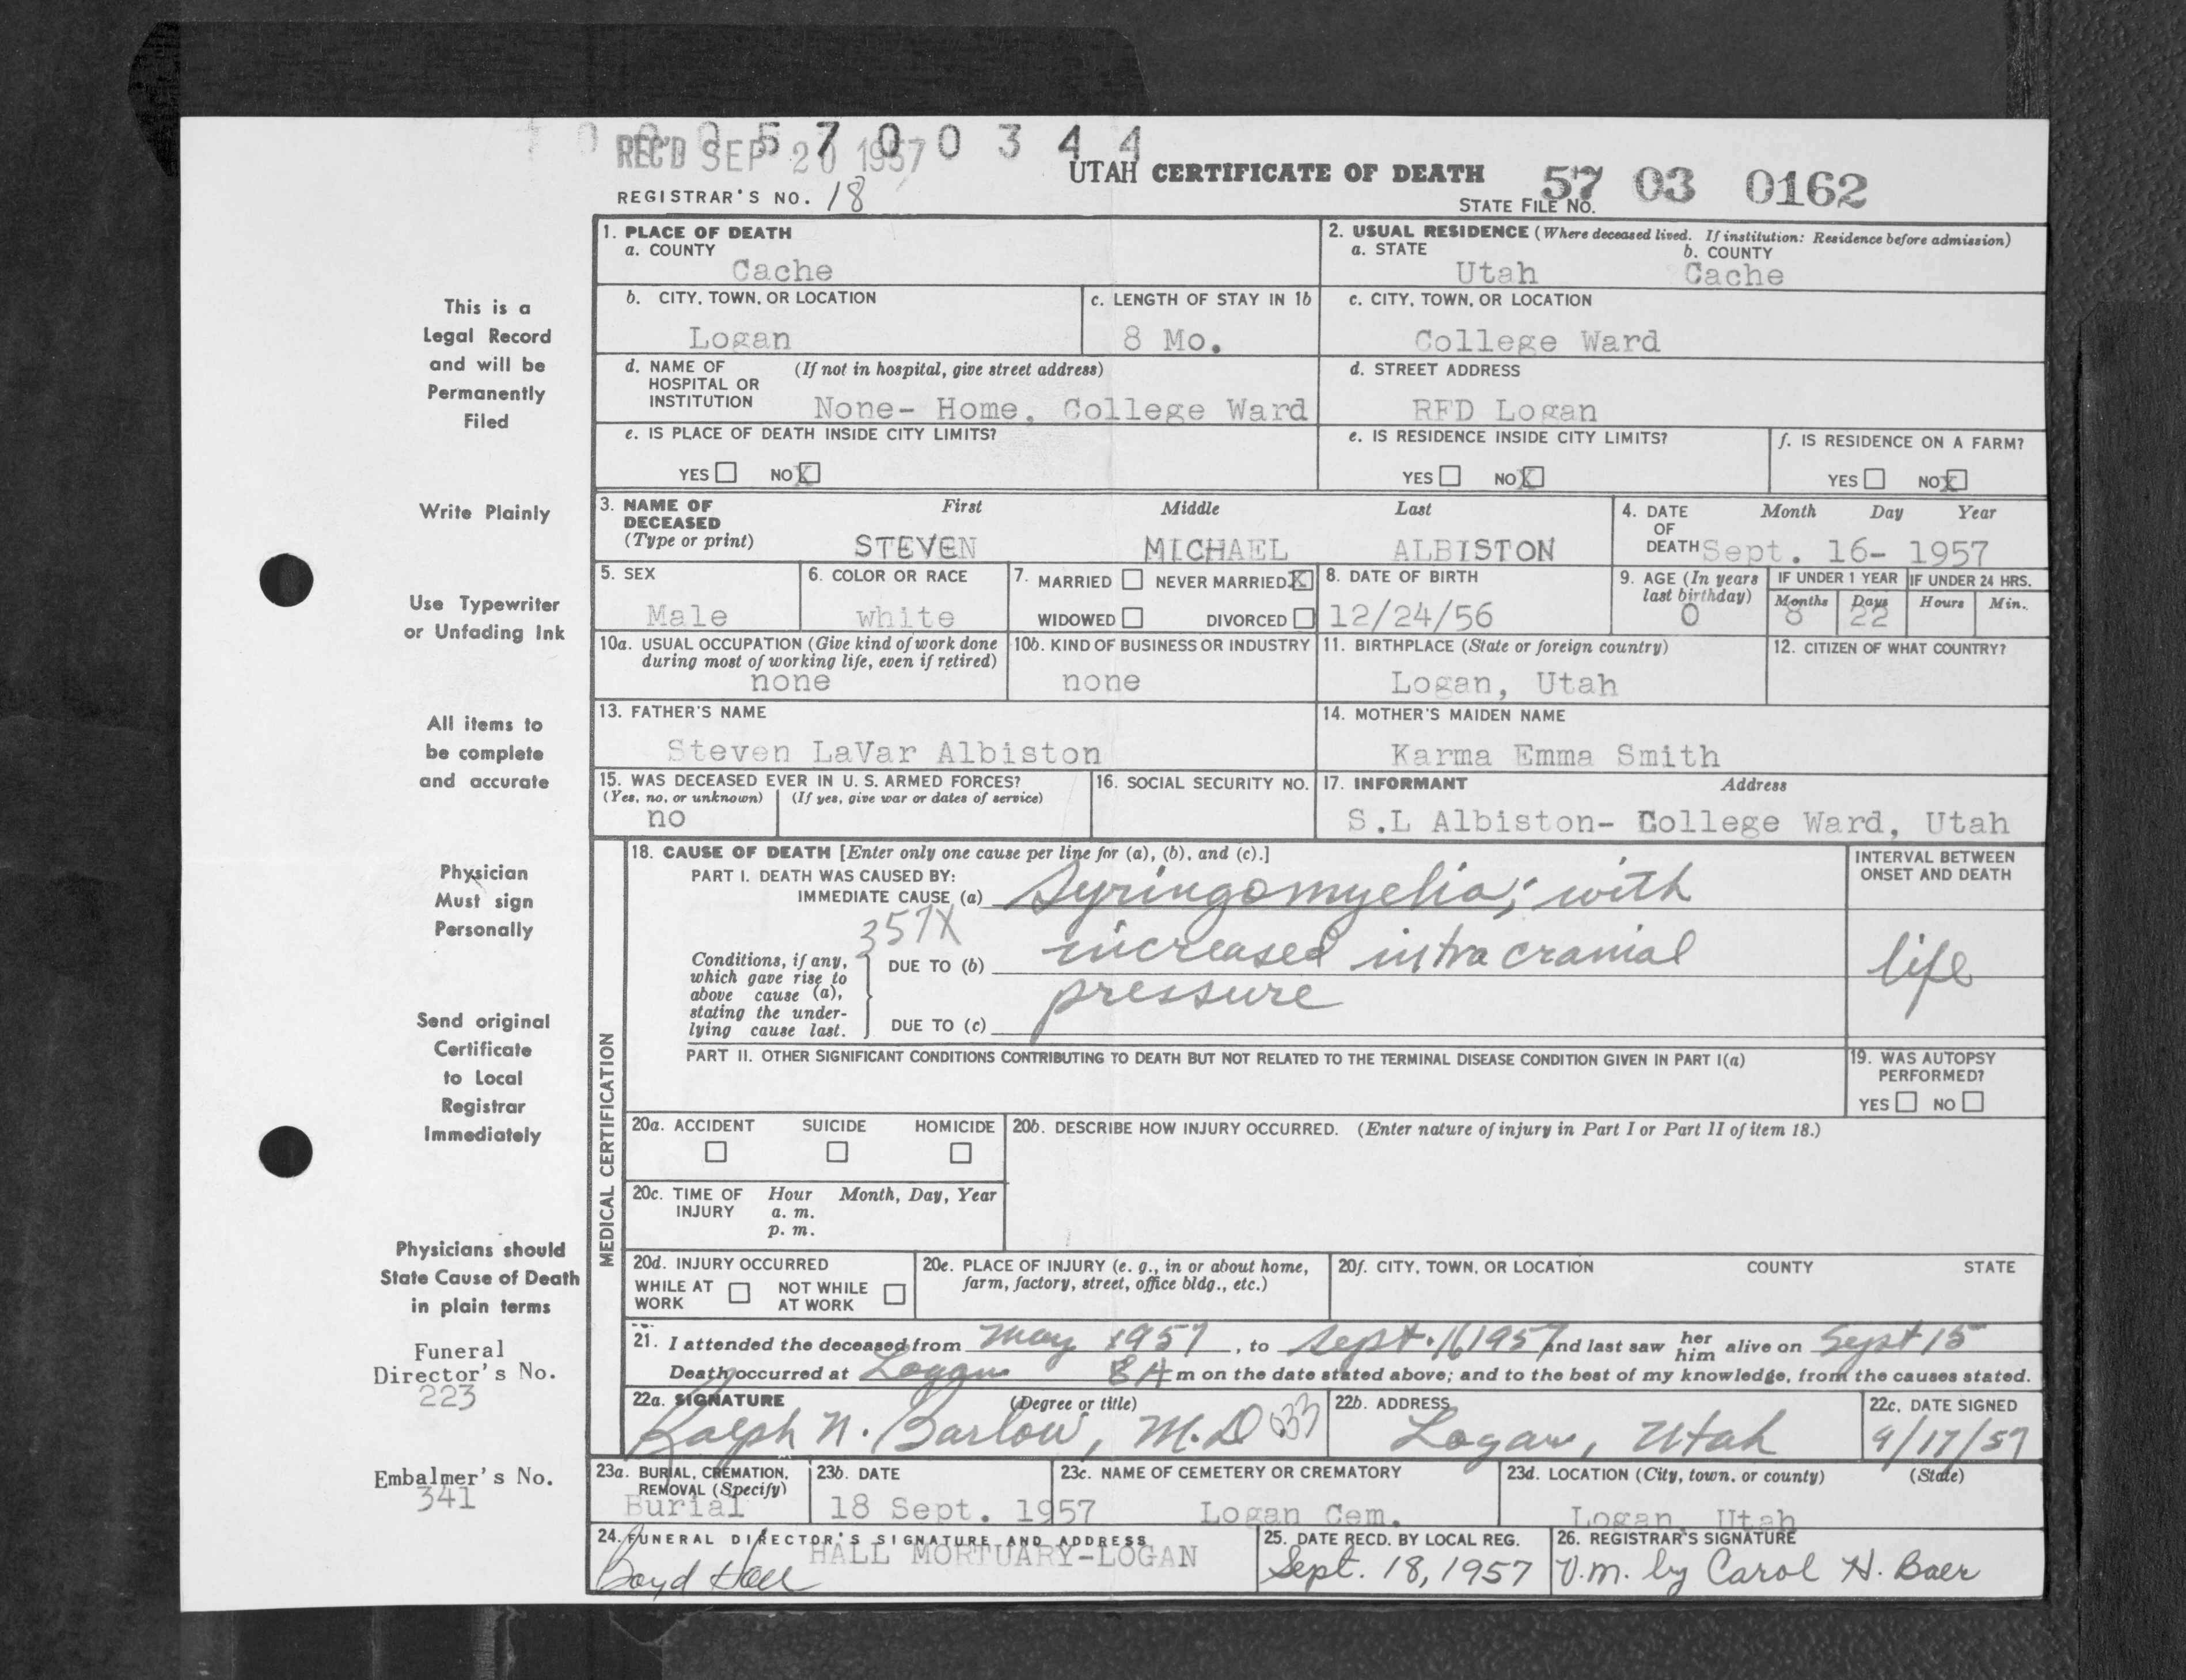 1 0 0 0 5 7 0 0 3 4 4
REC'D SEP 20 1957
UTAH CERTIFICATE OF DEATH
57 03 0162
REGISTRAR'S NO. 18
STATE FILE NO.
1. PLACE OF DEATH
a. COUNTY
Cache
2. USUAL RESIDENCE (Where deceased lived. If institution: Residence before admission)
a. STATE b. COUNTY
Utah Cache
b. CITY, TOWN, OR LOCATION
Logan
c. LENGTH OF STAY IN 1b
8 Mo.
c. CITY, TOWN, OR LOCATION
College Ward
d. NAME OF HOSPITAL OR INSTITUTION (If not in hospital, give street address)
None- Home, College Ward
d. STREET ADDRESS
RFD Logan
e. IS PLACE OF DEATH INSIDE CITY LIMITS?
YES NO X
e. IS RESIDENCE INSIDE CITY LIMITS?
YES NO X
f. IS RESIDENCE ON A FARM?
YES NO X
3. NAME OF DECEASED (Type or print)
First Middle Last
STEVEN MICHAEL ALBISTON
4. DATE OF DEATH Month Day Year
Sept. 16- 1957
5. SEX
Male
6. COLOR OR RACE
white
7. MARRIED NEVER MARRIED X
WIDOWED DIVORCED
8. DATE OF BIRTH
12/24/56
9. AGE (In years last birthday)
0
IF UNDER 1 YEAR
Months Days
8 22
IF UNDER 24 HRS.
Hours Min.
10a. USUAL OCCUPATION (Give kind of work done during most of working life, even if retired)
none
10b. KIND OF BUSINESS OR INDUSTRY
none
11. BIRTHPLACE (State or foreign country)
Logan, Utah
12. CITIZEN OF WHAT COUNTRY?
13. FATHER'S NAME
Steven LaVar Albiston
14. MOTHER'S MAIDEN NAME
Karma Emma Smith
15. WAS DECEASED EVER IN U. S. ARMED FORCES?
(Yes, no, or unknown) (If yes, give war or dates of service)
no
16. SOCIAL SECURITY NO.
17. INFORMANT Address
S.L Albiston- College Ward, Utah
MEDICAL CERTIFICATION
18. CAUSE OF DEATH [Enter only one cause per line for (a), (b), and (c).]
PART I. DEATH WAS CAUSED BY:
IMMEDIATE CAUSE (a) Syringomyelia; with
357X
Conditions, if any, which gave rise to above cause (a), stating the underlying cause last.
DUE TO (b) increased intra cranial
pressure
DUE TO (c)
INTERVAL BETWEEN ONSET AND DEATH
life
PART II. OTHER SIGNIFICANT CONDITIONS CONTRIBUTING TO DEATH BUT NOT RELATED TO THE TERMINAL DISEASE CONDITION GIVEN IN PART I(a)
19. WAS AUTOPSY PERFORMED?
YES NO
20a. ACCIDENT SUICIDE HOMICIDE
20b. DESCRIBE HOW INJURY OCCURRED. (Enter nature of injury in Part I or Part II of item 18.)
20c. TIME OF INJURY Hour Month, Day, Year
a. m.
p. m.
20d. INJURY OCCURRED
WHILE AT WORK NOT WHILE AT WORK
20e. PLACE OF INJURY (e. g., in or about home, farm, factory, street, office bldg., etc.)
20f. CITY, TOWN, OR LOCATION COUNTY STATE
21. I attended the deceased from May 1957, to Sept. 16 1957 and last saw her him alive on Sept 15
Death occurred at Logan 8 A m on the date stated above; and to the best of my knowledge, from the causes stated.
22a. SIGNATURE (Degree or title)
Ralph N. Barlow, M.D 033
22b. ADDRESS
Logan, Utah
22c. DATE SIGNED
9/17/57
23a. BURIAL, CREMATION, REMOVAL (Specify)
Burial
23b. DATE
18 Sept. 1957
23c. NAME OF CEMETERY OR CREMATORY
Logan Cem.
23d. LOCATION (City, town, or county) (State)
Logan, Utah
24. FUNERAL DIRECTOR'S SIGNATURE AND ADDRESS
HALL MORTUARY-LOGAN
Boyd Hall
25. DATE RECD. BY LOCAL REG.
Sept. 18, 1957
26. REGISTRAR'S SIGNATURE
V.m. by Carol H. Baer
This is a
Legal Record
and will be
Permanently
Filed
Write Plainly
Use Typewriter
or Unfading Ink
All items to
be complete
and accurate
Physician
Must sign
Personally
Send original
Certificate
to Local
Registrar
Immediately
Physicians should
State Cause of Death
in plain terms
Funeral
Director's No.
223
Embalmer's No.
341